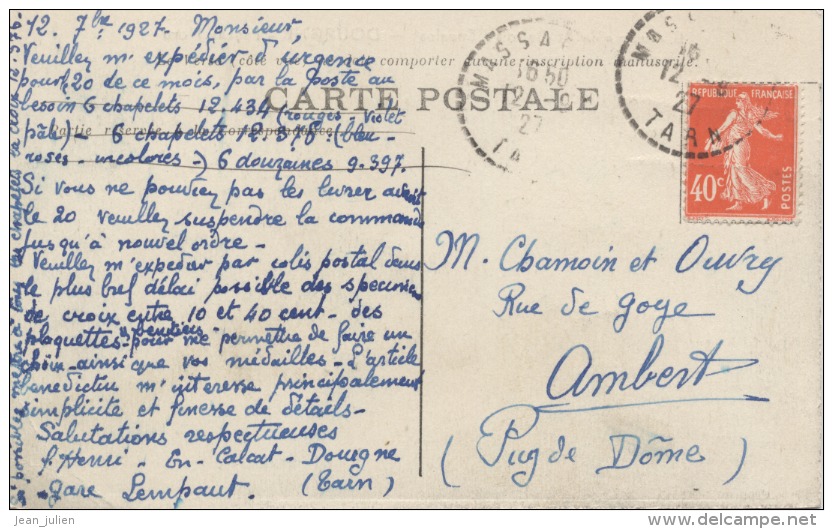 12. 7bre 1927. Monsieur
Veuillez m'expédier d'urgence
pour le 20 de ce mois, par la poste au
besoin 6 chapelets 12.434 (rouges - violet
pâle) - 6 chapelets 12.376: (bleu -
roses - incolores -) 6 douzaines 9.397.
Si vous ne pouviez pas les livrer avant
le 20 veuillez suspendre la commande
jusqu'à nouvel ordre -
Veuillez m'expédier par colis postal dans
le plus bref délai possible des specimens
de croix entre 10 et 40 cent - des
plaquettes "benitiers" pour me permettre de faire un
choix - ainsi que vos médailles - L'article
benedictin m'interesse principalement
simplicité et finesse de détails -
Salutations respectueuses
f. Henri - En-Calcat - Dourgne
gare Lempaut. (Tarn)
Si possible mettre à tous les chapelets la croix 12.576
côté
comporter aucune inscription manuscrite.
CARTE POSTALE
Partie réservée à la correspondance
MASSA
16 50
12
27
TA
MASS
16
12
27
TARN
RÉPUBLIQUE FRANÇAISE
40c
POSTES
M. Chamoin et Ouvry
Rue de Goye
Ambert
(Puy de Dôme)
jean_julien
delcampe.net